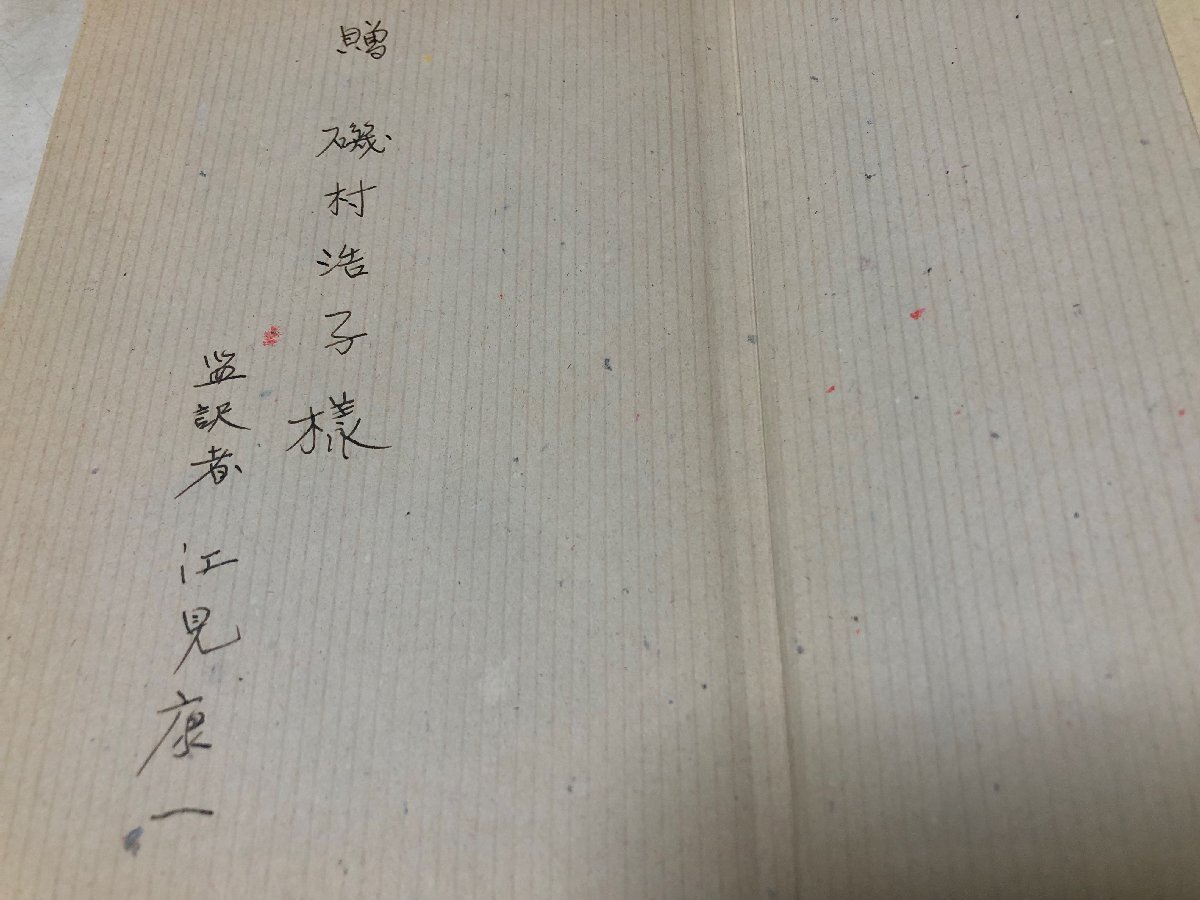 贈 磯村浩子様
監訳者 江見康一